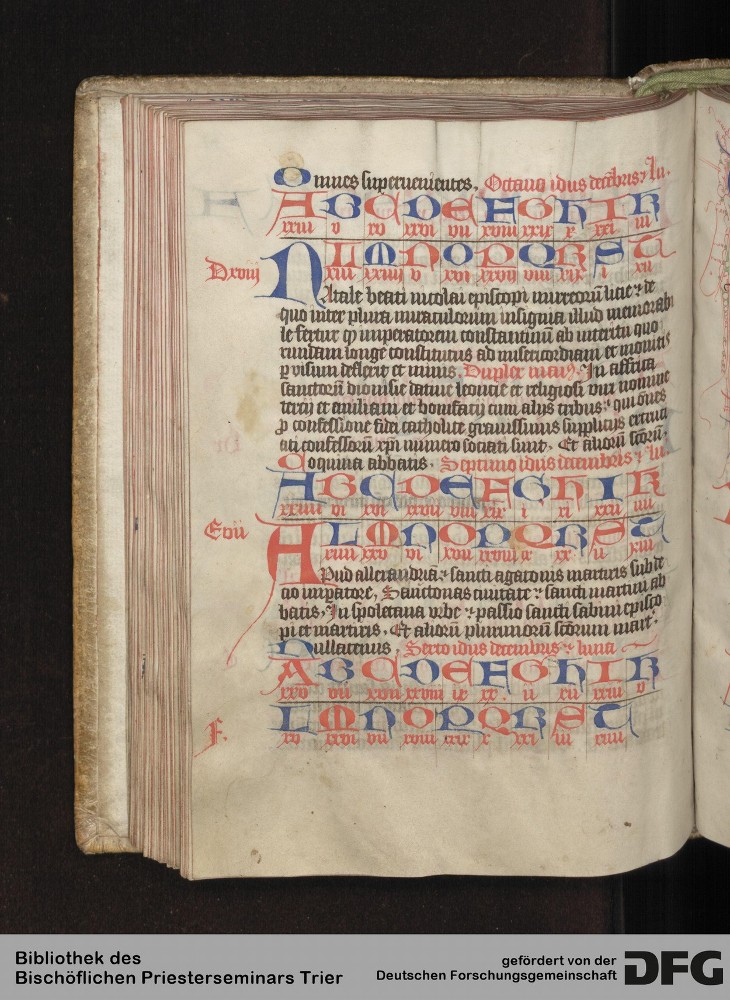 Omnes superuenientes. Octauo idus decēbris & lu.
A B C D E F G H I K
xxiii v xv xxvi vii xviii xxix x xxi iii
L M N O P Q R S T
D xviij
xiii xxiiii v xvi xxvii viii xix i xii
NAtale beati nicolai episcopi mirreorū licie & de
quo inter plura miraculorum insignia illud memorabi
le fertur qꝫ imperatorem constantinum ab interitu quo
rundam longe constitutus ad misericordiam et monitis
ꝑ visum deflexit et minis. Duplex maiꝰ. In affrica
sanctorū dionisie datiue leoncie et religiosi viri nomine
tercij et emiliani et bonifacij cum alijs tribus & qui oīes
ꝓ confessione fidei catholice grauissimis supplicijs excruci
ati confessorū xp̄i numero sociati sunt. Et aliorū sctōrū.
Coquina abbatis. Septimo idus decembris & lu.
A B C D E F G H I K
xxiiii vi xvi xxvii viii xix i xi xxii iiii
E viii
L M N O P Q R S T
xiiii xxv vi xvii xxviii ix xx ii xiii
APud allexandriā & sancti agathonis martiris sub de
cio imꝑatore, Sanctonas ciuitate & sancti martini ab
batis, In spoletana vrbe & passio sancti sabini episco
pi et martiris. Et aliorū plurimorū sctōrum mart.
Nullatenus, Sexto idus decembris & luna
A B C D E F G H I K
xxv vii xvii xxviii ix xx ii xii xxiii v
F.
L M N O P Q R S T
xv xxvi vii xviii xxix x xxi iii xiiii
Bibliothek des
Bischöflichen Priesterseminars Trier
gefördert von der
Deutschen Forschungsgemeinschaft
DFG